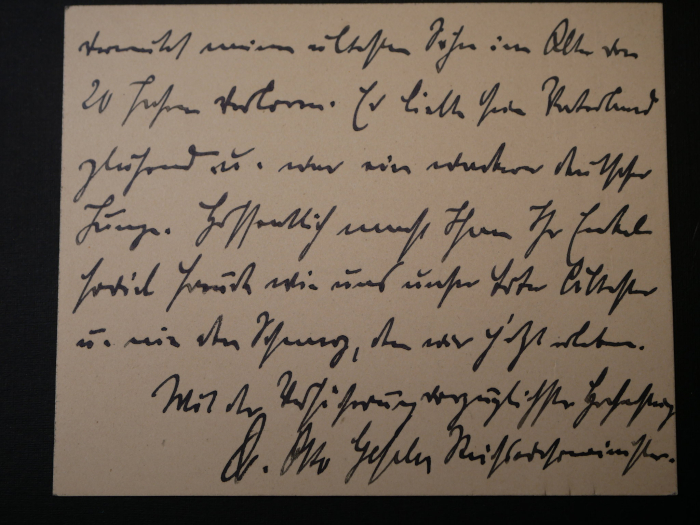 vermutet meinen ältesten Sohn im Alter von
20 Jahren verloren. Er liebte sein Vaterland
glühend u. war ein wackerer deutscher
Junge. Hoffentlich macht Ihnen Ihr Enkel
soviel Freude wie uns unser toter Ältester
u. nie den Schmerz, den wir jetzt erleben.
Mit der Versicherung vorzüglichster Hochachtung
Dr. Otto Gessler Reichswehrminister.